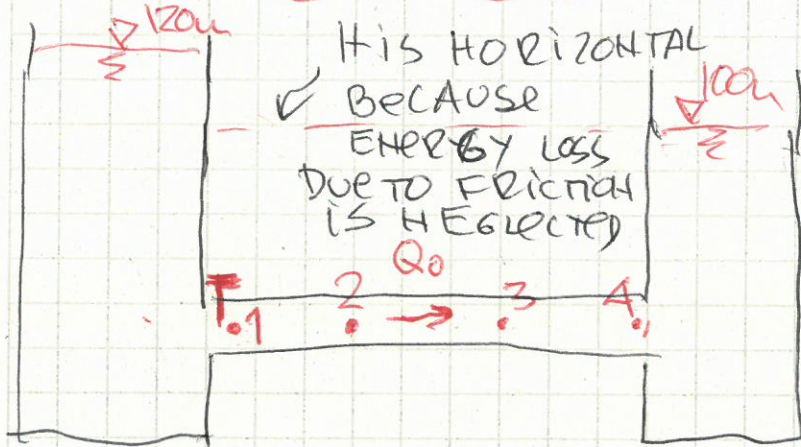 120m
100m
H iS HORiZONTAL
BECAUSE
ENERGY LOSS
DUE TO FRiCTiON
iS NEGLECTED
Q0
1 2 3 4